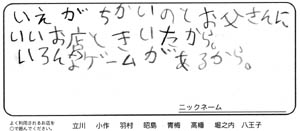 いえがちかいのとお父さんに
いいお店ときいたから。
いろんなゲームがあるから。
ニックネーム
よく利用されるお店を
○で囲んでください。
立川 小作 羽村 昭島 青梅 高幡 堀之内 八王子